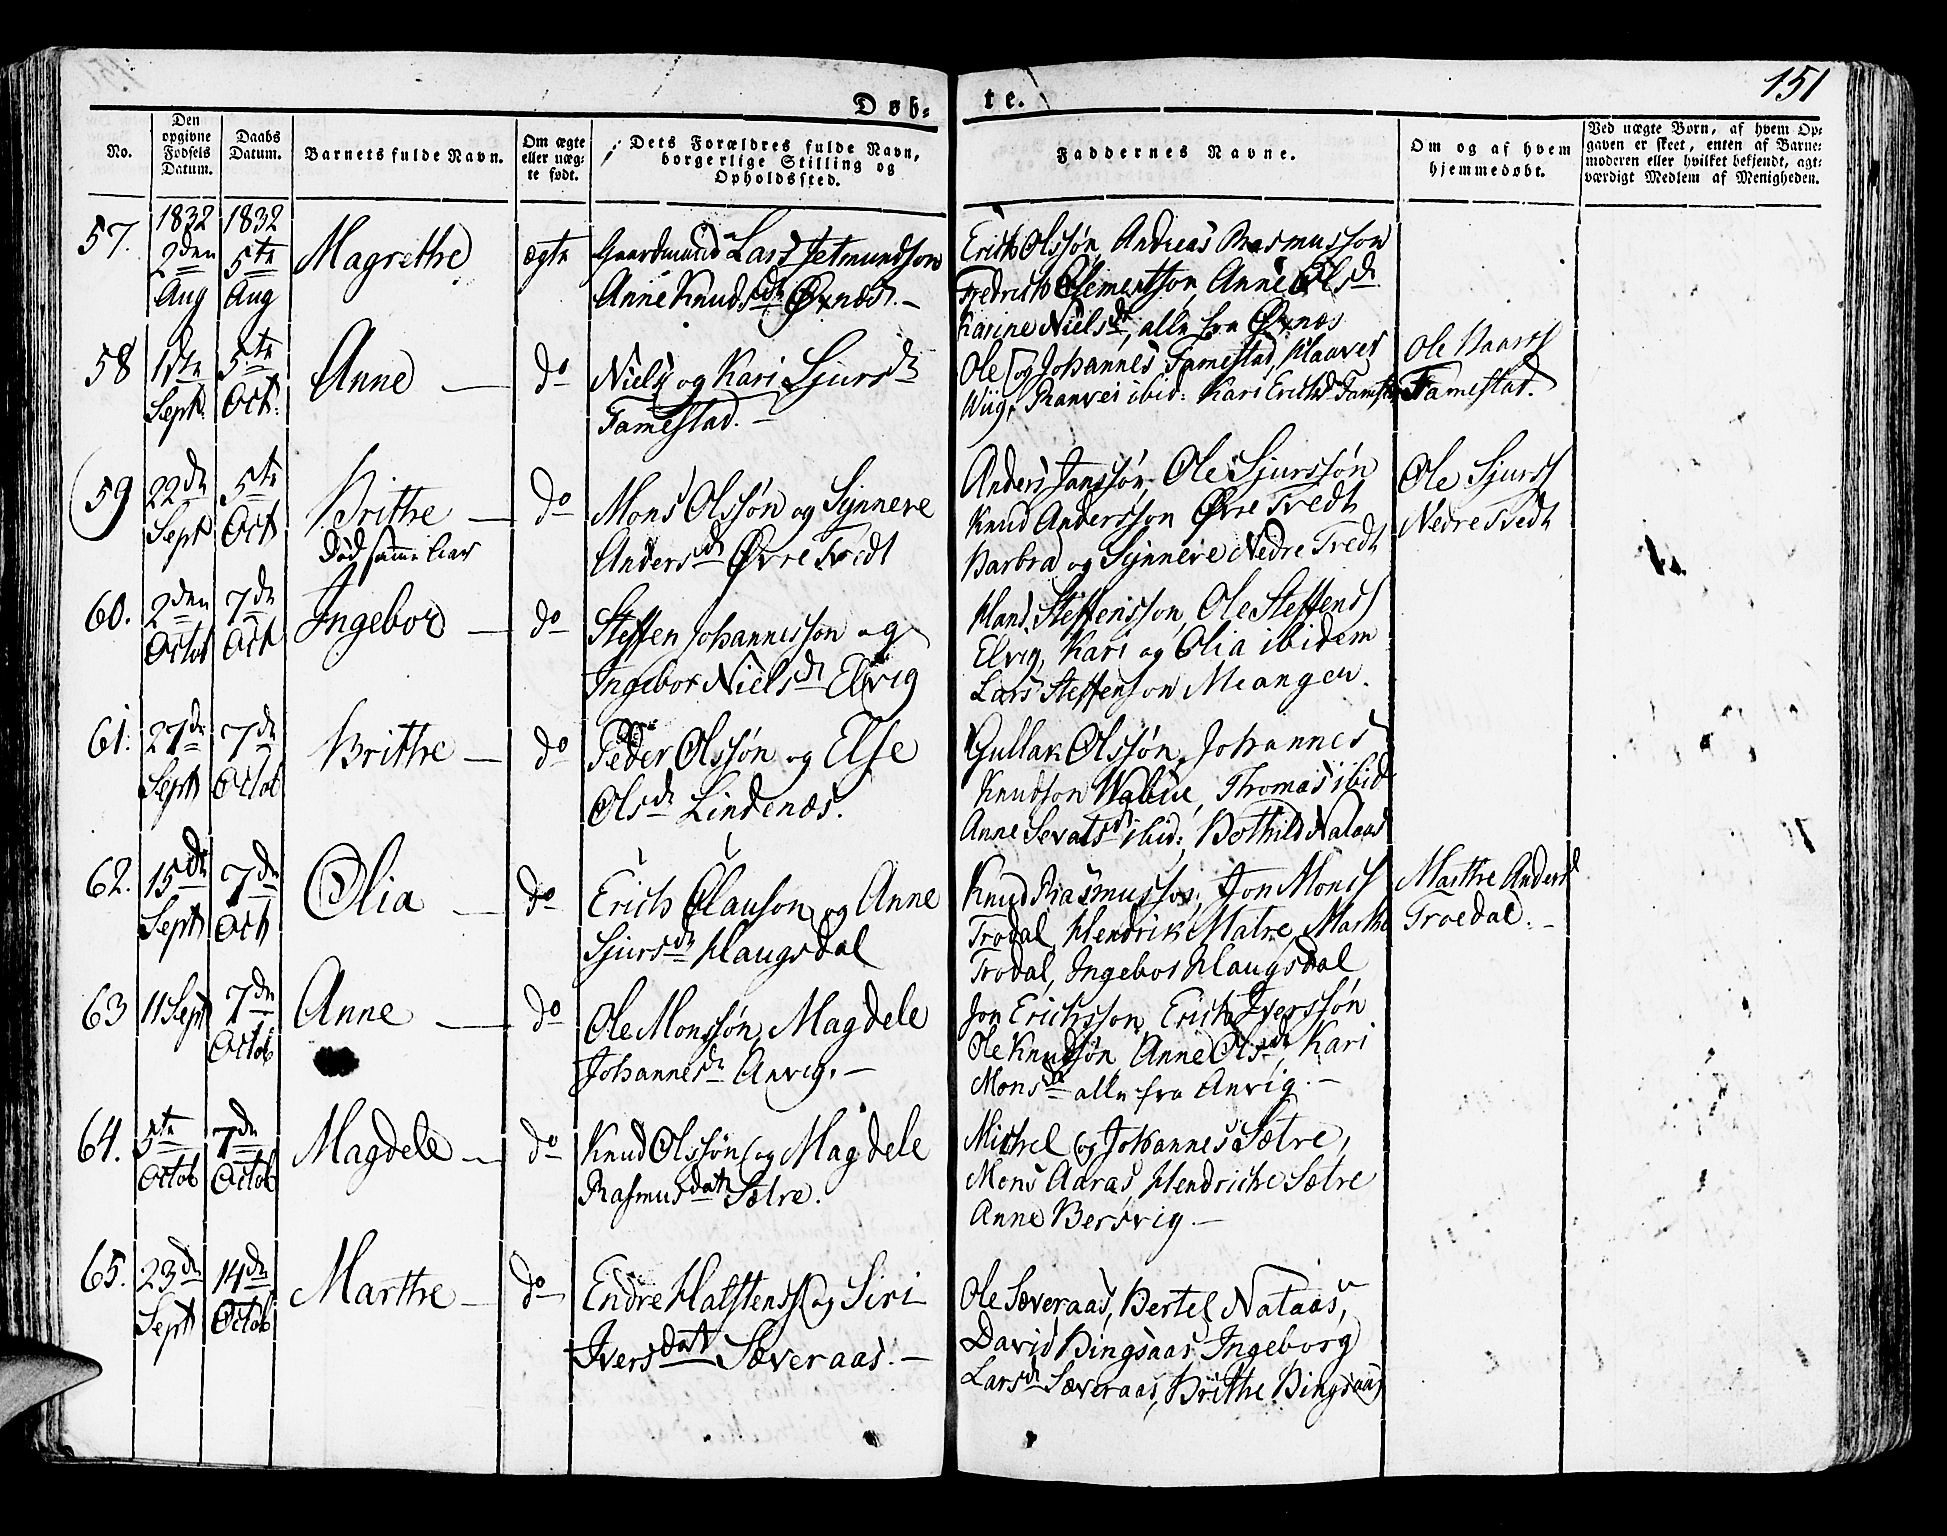 151
Døb-
te.
No.
Den opgivne Fødsels Datum.
Daabs Datum.
Barnets fulde Navn.
Om ægte eller uæg-te født.
Dets Forældres fulde Navn, borgerlige Stilling og Opholdssted.
Faddernes Navne.
Om og af hvem hjemmedøbt.
Ved uægte Børn, af hvem Op-gaven er skeet, enten af Barne-moderen eller hvilket bekjendt, agt-værdigt Medlem af Menigheden.
57. 1832 2den Aug 1832 5te Aug Magrethe ægte
Gaardmand Lars Jetmundson
Anne Knudsdr Øxnæs.–
Erich Olssøn, Andreas Rasmusson
Fredrich Clementson, Anne Olsdr
Karine Nielsdr, alle fra Øxnæs
58 1ste Sept: 5te Oct: Anne — do
Niels og Kari Sjursdr
Famestad.–
Ole og Johannes Famestad, Klaaver
Wiig, Ranvei ibid: Kari Erichsd
Ole
Famestad.
59 22de Sept 5te Oct Brithe — do
Død samme
Mons Olssøn og Synneve
Andersdr Øvre Tvedt
Anders Janssøn, Ole Sjurssøn
Knud Andersson Øvre Tvedt
Barbra og Synneve Nedre Tvedt
Ole Sjurss
Nedre Tvedt
60. 2den Octob 7de Oct Ingebor — do
Steffen Johannesson og
Ingebor Nielsdr Elvig
Hans Steffensson, Ole Steffenss
Elvig, Kari og Olia ibidem
Lars Steffenson Meanger.
61. 27de Sept 7de Octob Brithe — do
Peder Olssøn og Else
Olsdr Lindenæs.
Gullak Olssøn, Johannes
Knudson, Thomas ibid
Anne Sevatsdr ibid:, Bothild Nataas
62. 15de Sept 7de Oct Olia — do
Erich Olauson og Anne
Sjursdr Haugsdal
Knud Rasmusson, Jon Monss
Trodal, Hendrik Matre, Marthe
Trodal, Ingebor Haugsdal
Marthe Andersd
Troedal.–
63 11 Sept 7de Octob Anne — do
Ole Monssøn, Magdele
Johannesdr Anvig.–
Jon Erichsson, Erich Iverssøn
Ole Knudsøn, Anne Olsdr, Kari
Monsdr alle fra Anvig.–
64. 5te Octob 7de Octob Magdele – do
Knud Olssøn og Magdele
Rasmusdatr Sætre.
Michel og Johannes Sætre,
Mons Aaras, Hendriche Sætre
Anne Bersvig.–
65. 23de Sept 14de Octob Marthe – do
Endre Halstenss og Siri
Iversdatr Sæveraas.–
Ole Sæveraas, Bertel Nataas,
David Bingsaas, Ingeborg
Larsdr Sæveraas, Brithe Bingsaas